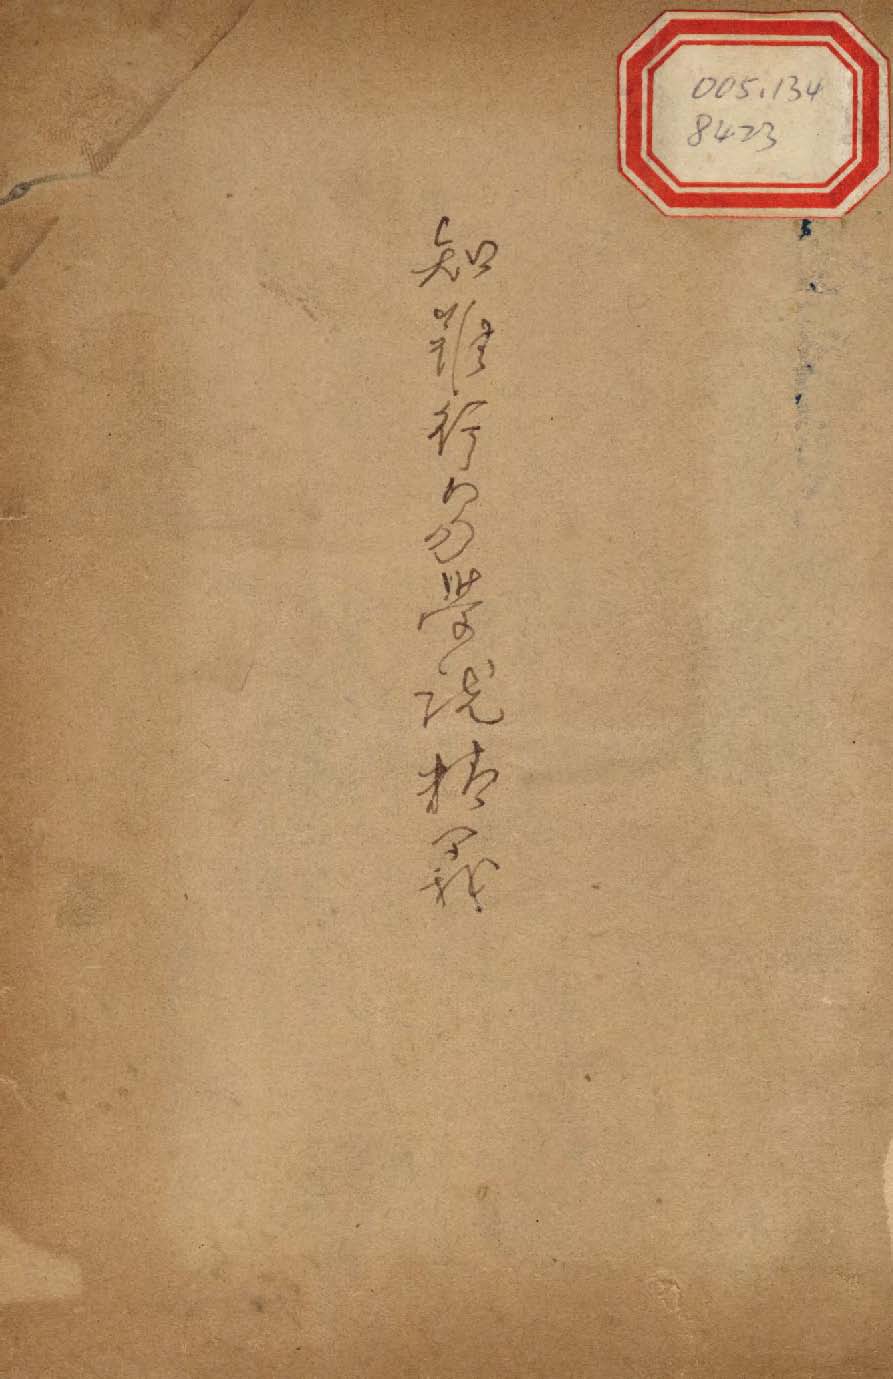 005.134
8423
知難行易學說精義